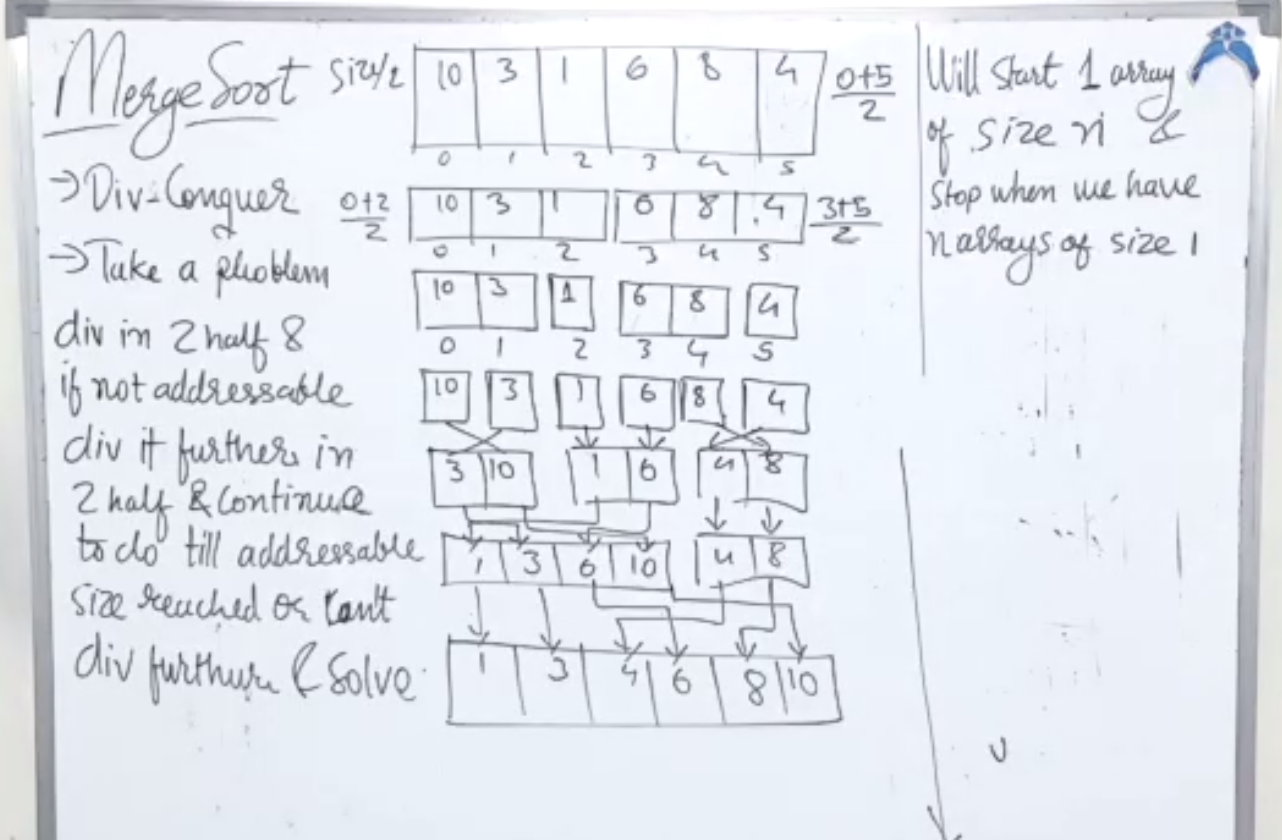 MergeSort
→Div-Conquer
→Take a problem
div in 2 half &
if not addressable
div it further in
2 half & Continue
to do till addressable
size reached or Can't
div further & Solve
Size/2 10 3 1 6 8 4 0+5/2
0 1 2 3 4 5
0+2/2 10 3 1 6 8 4 3+5/2
0 1 2 3 4 5
10 3 1 6 8 4
0 1 2 3 4 5
10 3 1 6 8 4
3 10 1 6 4 8
1 3 6 10 4 8
1 3 4 6 8 10
Will Start 1 array
of size n &
Stop when we have
n arrays of size 1